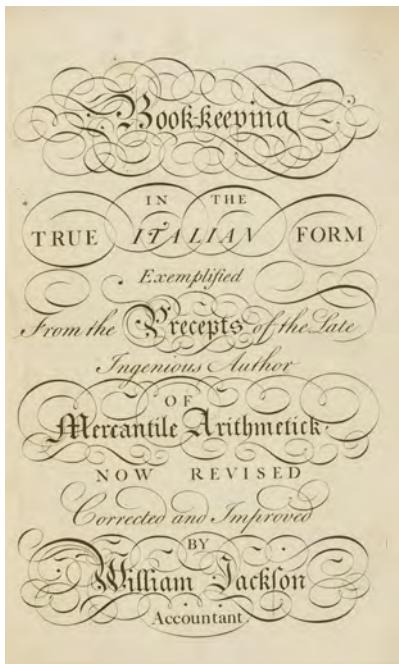 Book-keeping
IN THE
TRUE ITALIAN FORM
Exemplified
From the Precepts of the Late
Ingenious Author
OF
Mercantile Arithmetick
NOW REVISED
Corrected and Improved
BY
William Jackſon
Accountant.